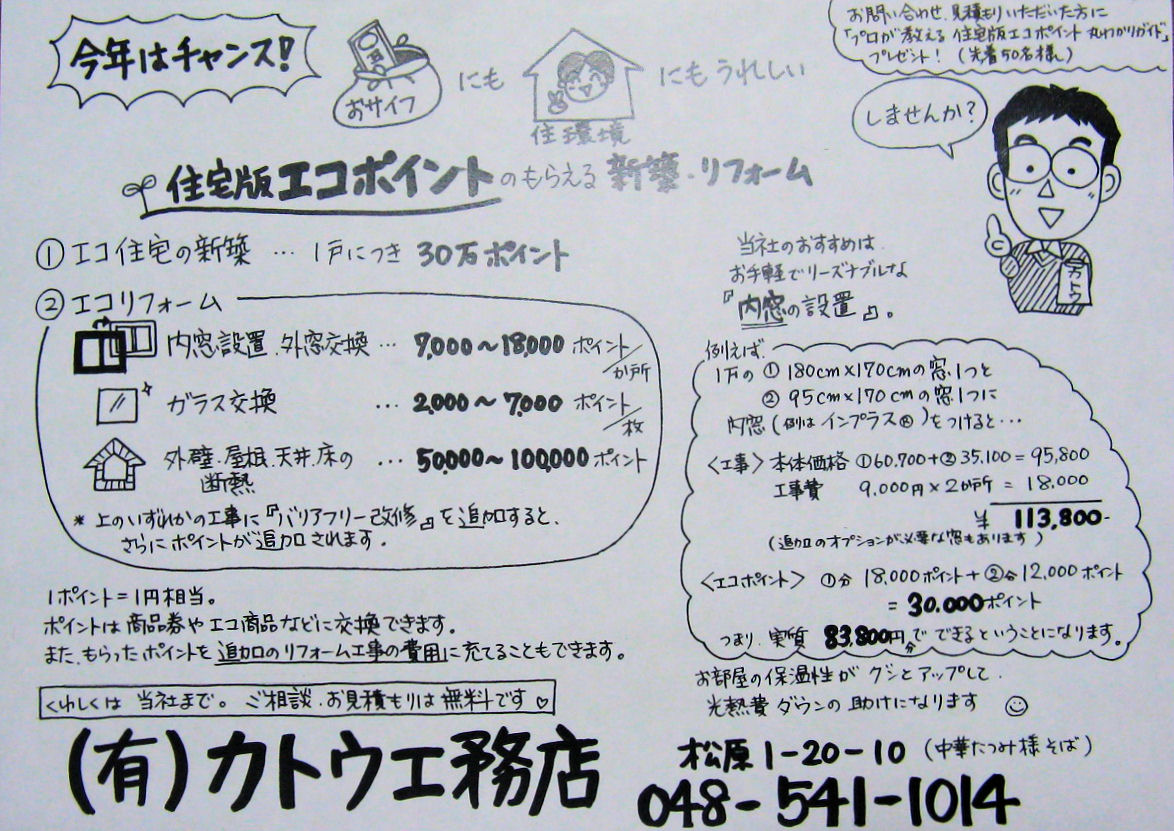 今年はチャンス!
おサイフ
にも
住環境
にもうれしい
お問い合わせ、見積もりいただいた方に
「プロが教える住宅版エコポイント丸わかりガイド」
プレゼント!(先着50名様)
住宅版エコポイントのもらえる新築・リフォーム
しませんか?
カトウ
① エコ住宅の新築 … 1戸につき 30万ポイント
② エコリフォーム
内窓設置、外窓交換 … 7,000〜18,000 ポイント/か所
ガラス交換 … 2,000〜7,000 ポイント/枚
外壁、屋根、天井、床の断熱 … 50,000〜100,000 ポイント
* 上のいずれかの工事に『バリアフリー改修』を追加すると、
さらにポイントが追加されます。
1ポイント=1円相当。
ポイントは商品券やエコ商品などに交換できます。
また、もらったポイントを追加のリフォーム工事の費用に充てることもできます。
くわしくは当社まで。ご相談、お見積もりは無料です♡
当社のおすすめは、
お手軽でリーズナブルな
『内窓の設置』。
例えば、
1Fの ① 180cm×170cmの窓1つと
② 95cm×170cmの窓1つに
内窓(例はインプラス®)をつけると…
〈工事〉本体価格 ①60,700+②35,100=95,800
工事費 9,000円×2か所 = 18,000
¥ 113,800-
(追加のオプションが必要な窓もあります)
〈エコポイント〉 ①分 18,000ポイント+②分 12,000ポイント
= 30,000ポイント
つまり、実質 83,800円分でできるということになります。
お部屋の保温性がグンとアップして、
光熱費ダウンの助けになります
(有)カトウ工務店
松原1-20-10(中華たつみ様そば)
048-541-1014